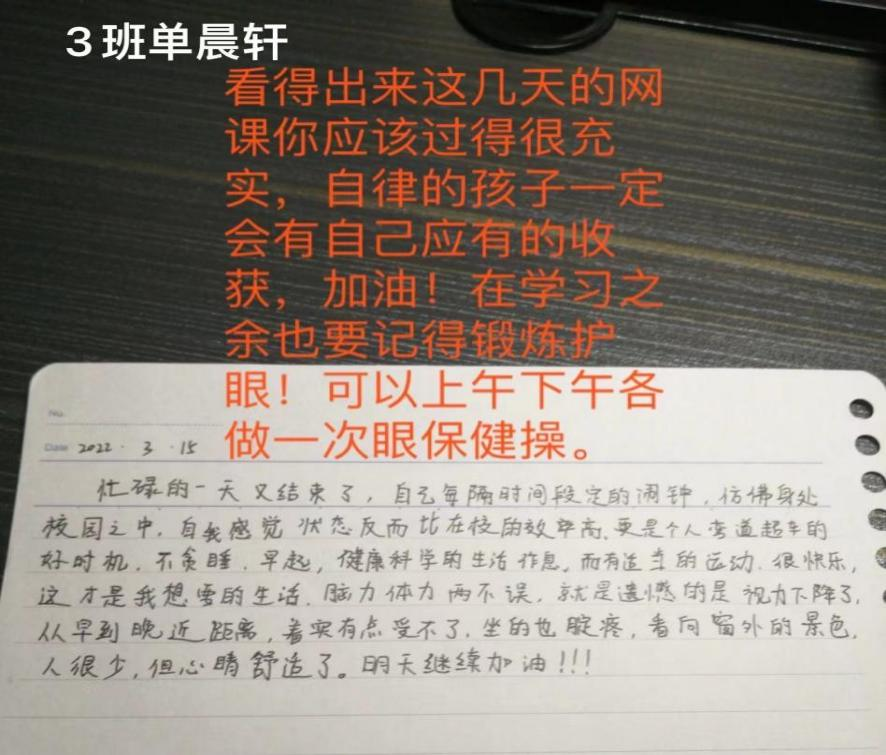 3班单晨轩
看得出来这几天的网
课你应该过得很充
实，自律的孩子一定
会有自己应有的收
获，加油！在学习之
余也要记得锻炼护
眼！可以上午下午各
做一次眼保健操。
No.
Date 2022 . 3 . 15
忙碌的一天又结束了，自己每隔时间段定的闹钟，仿佛身处
校园之中，自我感觉 状态反而比在校的效率高，更是个人弯道超车的
好时机．不贪睡．早起，健康科学的生活作息，而有适当的运动．很快乐，
这才是我想要的生活．脑力体力两不误．就是遗憾的是视力下降了，
从早到晚近距离，着实有点受不了．坐的也腚疼，看向窗外的景色，
人很少，但心晴舒适了。明天继续加油!!!